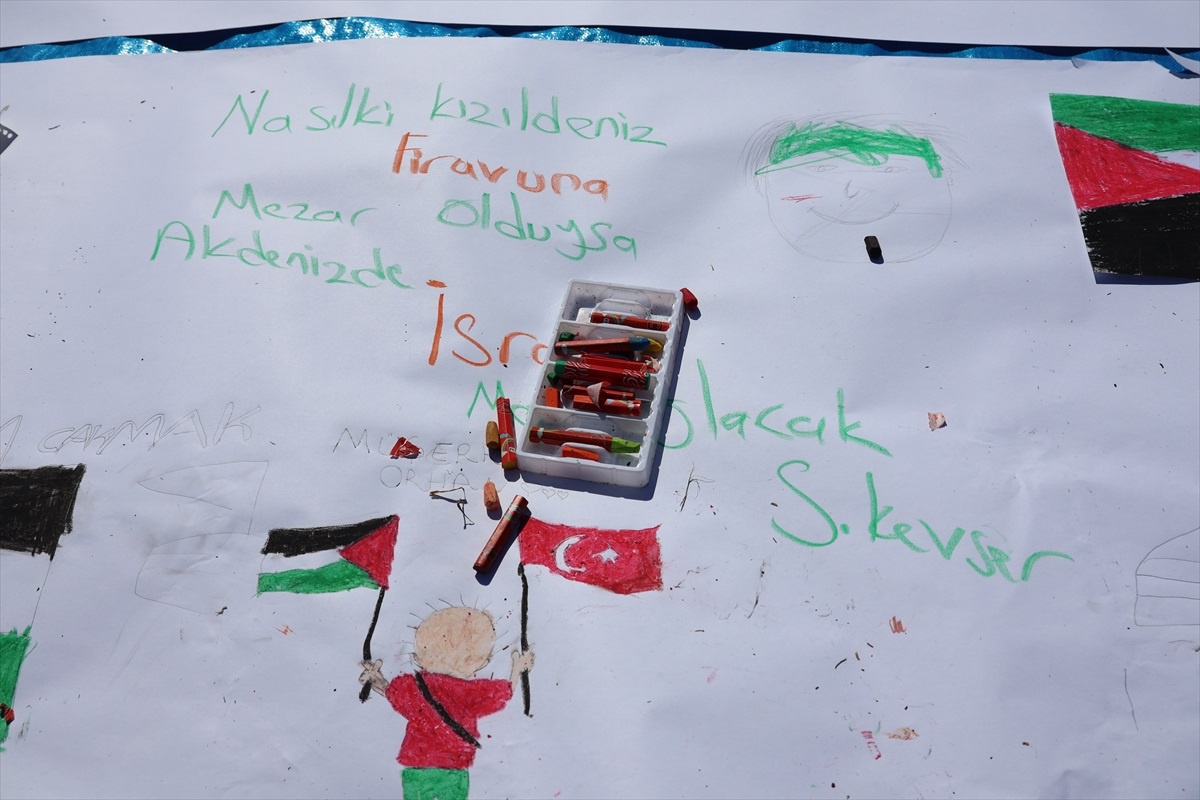 Nasılki kızıldeniz
Firavuna
Mezar olduysa
Akdenizde
olacak
S. kevser
ÇAKMAK